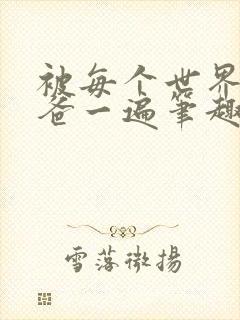 被每个世界
爸一遍笔趣
雪落微揚